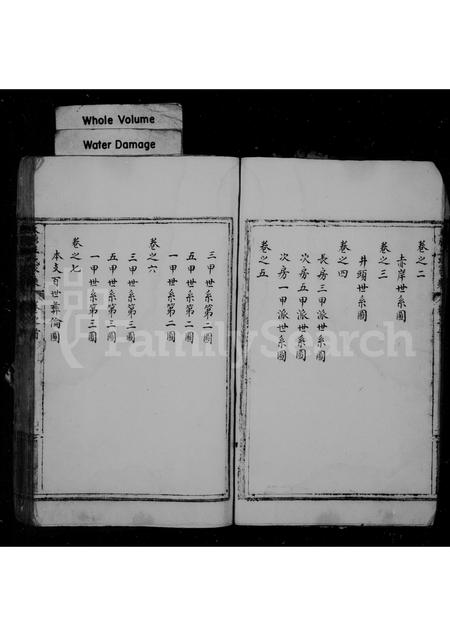 Whole Volume
Water Damage
卷之二
赤岸世系圖
卷之三
井頭世系圖
卷之四
長房三甲派世系圖
次房五甲派世系圖
次房一甲派世系圖
卷之五
三甲世系第二圖
五甲世系第二圖
一甲世系第二圖
卷之六
三甲世系第三圖
五甲世系第三圖
一甲世系第三圖
卷之七
本支百世彝倫圖
FamilySearch